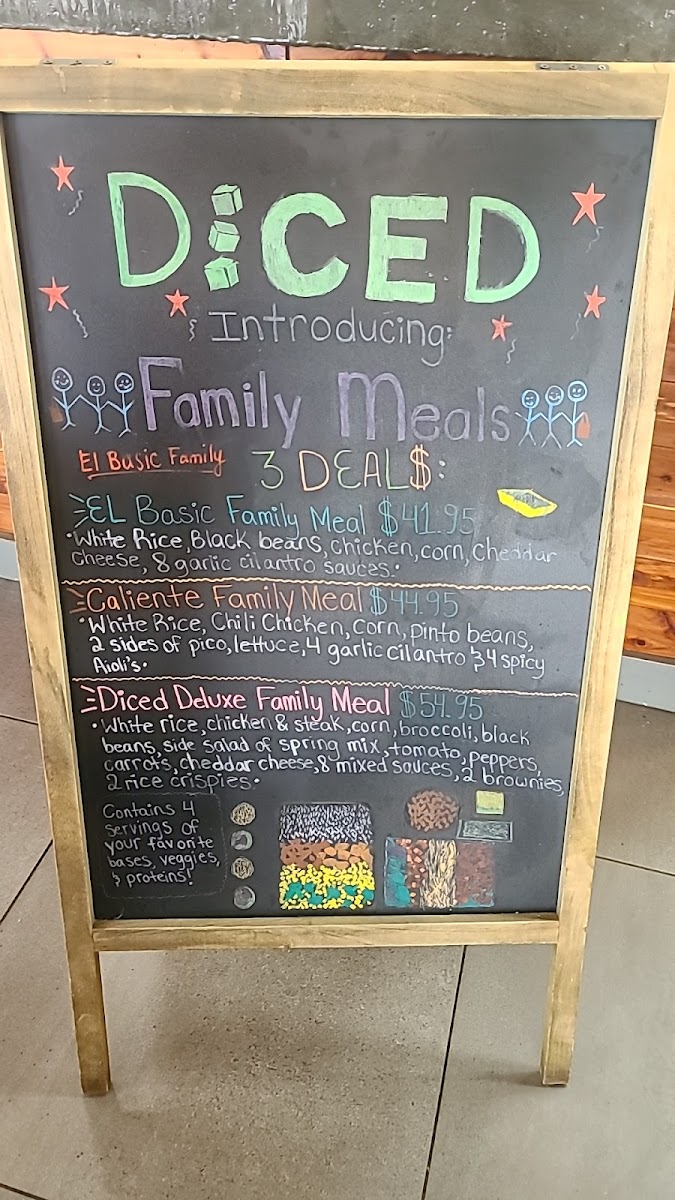 DiCED
Introducing:
Family Meals
El Basic Family
3 DEAL$:
EL Basic Family Meal $41.95
•White Rice, Black beans, chicken, corn, cheddar
cheese, 8 garlic cilantro sauces.•
Caliente Family Meal $44.95
•White Rice, Chili Chicken, corn, pinto beans,
2 sides of pico, lettuce, 4 garlic cilantro & 4 spicy
Aioli's•
Diced Deluxe Family Meal $54.95
•White rice, chicken & steak, corn, broccoli, black
beans, side salad of spring mix, tomato, peppers,
carrots, cheddar cheese, 8 mixed sauces, 2 brownies,
2 rice crispies•
Contains 4
servings of
your favorite
bases, veggies,
& proteins!